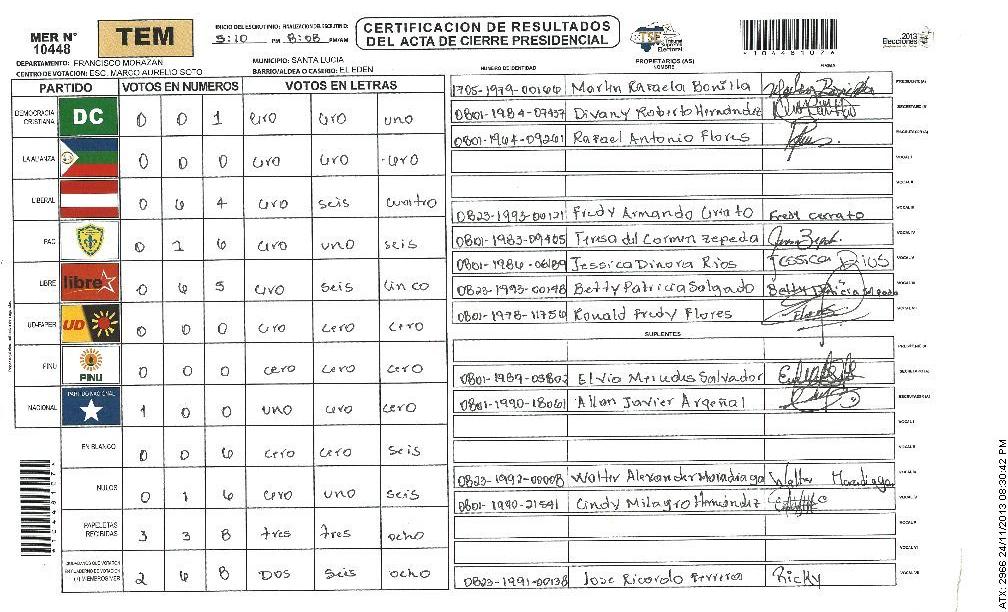 MER N°
10448
TEM
INICIO DEL ESCRUTINIO: FINALIZACION DEL ESCRUTINIO:
5:10 PM 8:08 PM/AM
CERTIFICACION DE RESULTADOS
DEL ACTA DE CIERRE PRESIDENCIAL
TSE
Electoral
2013
Elecciones
DEPARTAMENTO: FRANCISCO MORAZAN
MUNICIPIO: SANTA LUCIA
CENTRO DE VOTACION: ESC. MARCO AURELIO SOTO
BARRIO/ALDEA O CASERIO: EL EDEN
PARTIDO VOTOS EN NUMEROS VOTOS EN LETRAS
DEMOCRACIA CRISTIANA DC 0 0 1 cero cero uno
LA ALIANZA 0 0 0 cero cero cero
LIBERAL 0 6 4 cero seis cuatro
PAC 0 1 6 cero uno seis
LIBRE libre 0 6 5 cero seis cinco
UD-FAPER UD 0 0 0 cero cero cero
PINU PINU 0 0 0 cero cero cero
NACIONAL PARTIDO NACIONAL 1 0 0 uno cero cero
EN BLANCO 0 0 6 cero cero seis
NULOS 0 1 6 cero uno seis
PAPELETAS RECIBIDAS 3 3 8 tres tres ocho
2 6 8 DOS seis ocho
NUMERO DE IDENTIDAD PROPIETARIOS (AS) NOMBRE FIRMA
Marlin Rafaela Bonilla PRESIDENTE(A)
Divany Roberto Hernandez SECRETARIO(A)
Rafael Antonio Flores ESCRUTADOR(A)
VOCAL I
VOCAL II
0823-1993-00121 Fredy Armando Cerrato Fredy cerrato VOCAL III
0801-1983-09405 Teresa del Carmen Zepeda VOCAL IV
0801-1986-06189 Jessica Dinora Rios Jessica Rios VOCAL V
0823-1993-00148 Betty Patricia Salgado Betty Patricia Salgado
Ronald Fredy Flores
SUPLENTES
PRESIDENTE(A)
Elvio Mercedes Salvador SECRETARIO(A)
0801-1990-18061 Allan Javier Argeñal ESCRUTADOR(A)
VOCAL I
VOCAL II
0823-1992-00008 Walter Alexander Moradiaga Walter Moradiaga
0801-1990-21541 Cindy Milagro Hernández
VOCAL V
VOCAL VI
0823-1991-00138 Jose Ricardo Ricky
ATX: 2966 24/11/2013 08:30:42 PM